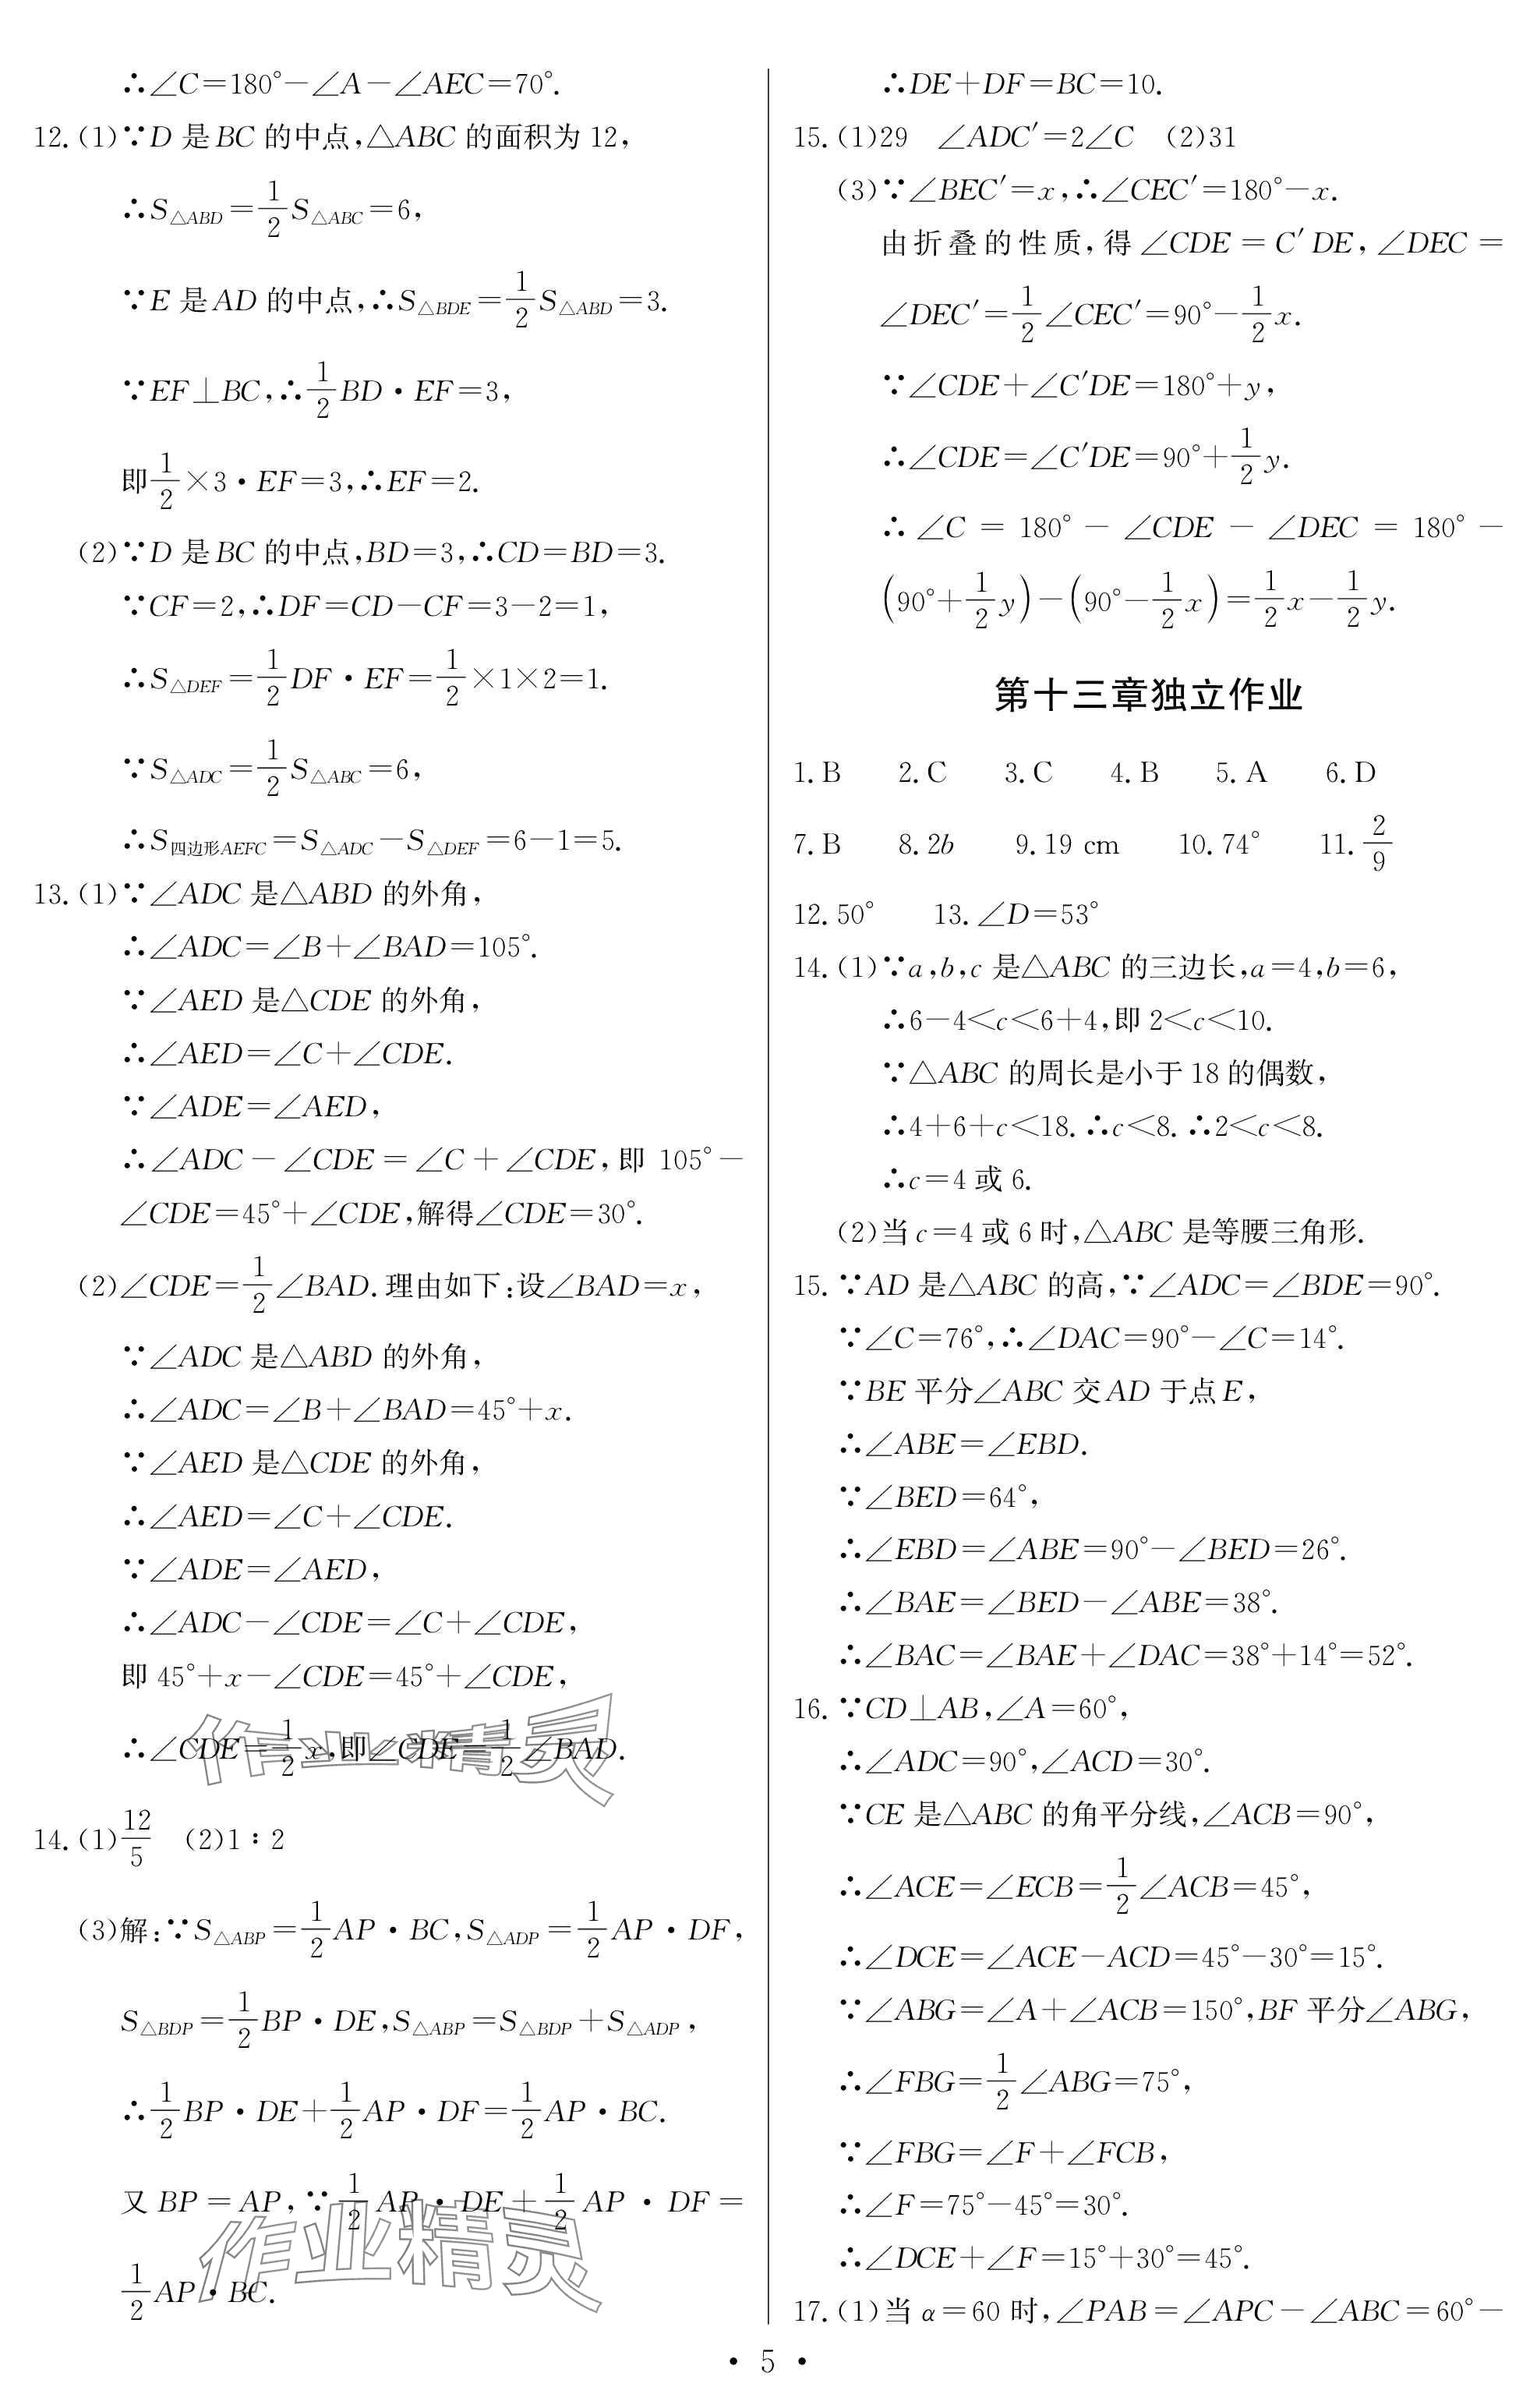 ∴∠C=180°-∠A-∠AEC=70°.
12.(1)∵D 是BC 的中点,△ABC 的面积为 12,
∴S△ABD=1/2 S△ABC=6,
∵E 是AD 的中点,∴S△BDE=1/2 S△ABD=3.
∵EF⊥BC,∴1/2 BD·EF=3,
即1/2×3·EF=3,∴EF=2.
(2)∵D 是BC 的中点,BD=3,∴CD=BD=3.
∵CF=2,∴DF=CD-CF=3-2=1,
∴S△DEF=1/2 DF·EF=1/2×1×2=1.
∵S△ADC=1/2 S△ABC=6,
∴S四边形AEFC=S△ADC-S△DEF=6-1=5.
13.(1)∵∠ADC 是△ABD 的外角,
∴∠ADC=∠B+∠BAD=105°.
∵∠AED 是△CDE 的外角,
∴∠AED=∠C+∠CDE.
∵∠ADE=∠AED,
∴∠ADC-∠CDE=∠C+∠CDE,即 105°-
∠CDE=45°+∠CDE,解得∠CDE=30°.
(2)∠CDE=1/2∠BAD.理由如下:设∠BAD=x,
∵∠ADC 是△ABD 的外角,
∴∠ADC=∠B+∠BAD=45°+x.
∵∠AED 是△CDE 的外角,
∴∠AED=∠C+∠CDE.
∵∠ADE=∠AED,
∴∠ADC-∠CDE=∠C+∠CDE,
即 45°+x-∠CDE=45°+∠CDE,
∴∠CDE=1/2 x,即∠CDE=1/2∠BAD.
作业精灵
14.(1)12/5 (2)1∶2
(3)解:∵S△ABP=1/2 AP·BC,S△ADP=1/2 AP·DF,
S△BDP=1/2 BP·DE,S△ABP=S△BDP+S△ADP,
∴1/2 BP·DE+1/2 AP·DF=1/2 AP·BC.
又 BP=AP,∵1/2 AP·DE+1/2 AP·DF=
作业精灵
1/2 AP·BC.
∴DE+DF=BC=10.
15.(1)29 ∠ADC′=2∠C (2)31
(3)∵∠BEC′=x,∴∠CEC′=180°-x.
由折叠的性质,得∠CDE=C′DE,∠DEC=
∠DEC′=1/2∠CEC′=90°-1/2 x.
∵∠CDE+∠C′DE=180°+y,
∴∠CDE=∠C′DE=90°+1/2 y.
∴∠C=180°-∠CDE-∠DEC=180°-
(90°+1/2 y)-(90°-1/2 x)=1/2 x-1/2 y.
第十三章独立作业
1.B 2.C 3.C 4.B 5.A 6.D
7.B 8.2b 9.19 cm 10.74° 11.2/9
12.50° 13.∠D=53°
14.(1)∵a,b,c 是△ABC 的三边长,a=4,b=6,
∴6-4<c<6+4,即 2<c<10.
∵△ABC 的周长是小于 18 的偶数,
∴4+6+c<18.∴c<8.∴2<c<8.
∴c=4 或 6.
(2)当 c=4 或 6 时,△ABC 是等腰三角形.
15.∵AD 是△ABC 的高,∵∠ADC=∠BDE=90°.
∵∠C=76°,∴∠DAC=90°-∠C=14°.
∵BE 平分∠ABC 交AD 于点E,
∴∠ABE=∠EBD.
∵∠BED=64°,
∴∠EBD=∠ABE=90°-∠BED=26°.
∴∠BAE=∠BED-∠ABE=38°.
∴∠BAC=∠BAE+∠DAC=38°+14°=52°.
16.∵CD⊥AB,∠A=60°,
∴∠ADC=90°,∠ACD=30°.
∵CE 是△ABC 的角平分线,∠ACB=90°,
∴∠ACE=∠ECB=1/2∠ACB=45°,
∴∠DCE=∠ACE-ACD=45°-30°=15°.
∵∠ABG=∠A+∠ACB=150°,BF 平分∠ABG,
∴∠FBG=1/2∠ABG=75°,
∵∠FBG=∠F+∠FCB,
∴∠F=75°-45°=30°.
∴∠DCE+∠F=15°+30°=45°.
17.(1)当 α=60 时,∠PAB=∠APC-∠ABC=60°-
· 5 ·